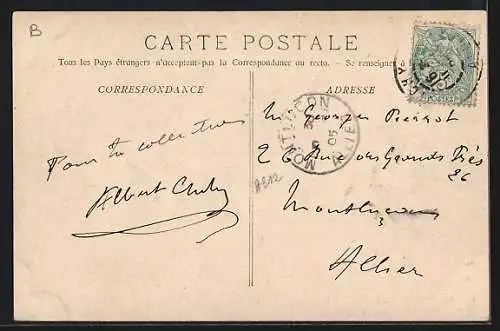 B
CARTE POSTALE
Tous les Pays étrangers n'acceptent pas la Correspondance au recto. - Se renseigner à
CORRESPONDANCE
ADRESSE
MONTLUÇON
05
ALLIER
Pour ta collection
Albert
M Georges Pierrot
26 Rue des Grands Prés
26
Montluçon
Allier